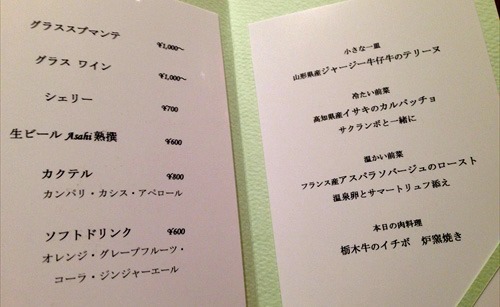 グラススプマンテ
¥1,000～
グラス ワイン
¥1,000～
シェリー
¥700
生ビール Asahi 熟撰
¥600
カクテル
¥800
カンパリ・カシス・アペロール
ソフトドリンク
¥600
オレンジ・グレープフルーツ・
コーラ・ジンジャーエール
小さな一皿
山形県産ジャージー牛仔牛のテリーヌ
冷たい前菜
高知県産イサキのカルパッチョ
サクランボと一緒に
温かい前菜
フランス産アスパラソバージュのロースト
温泉卵とサマートリュフ添え
本日の肉料理
栃木牛のイチボ 炉窯焼き